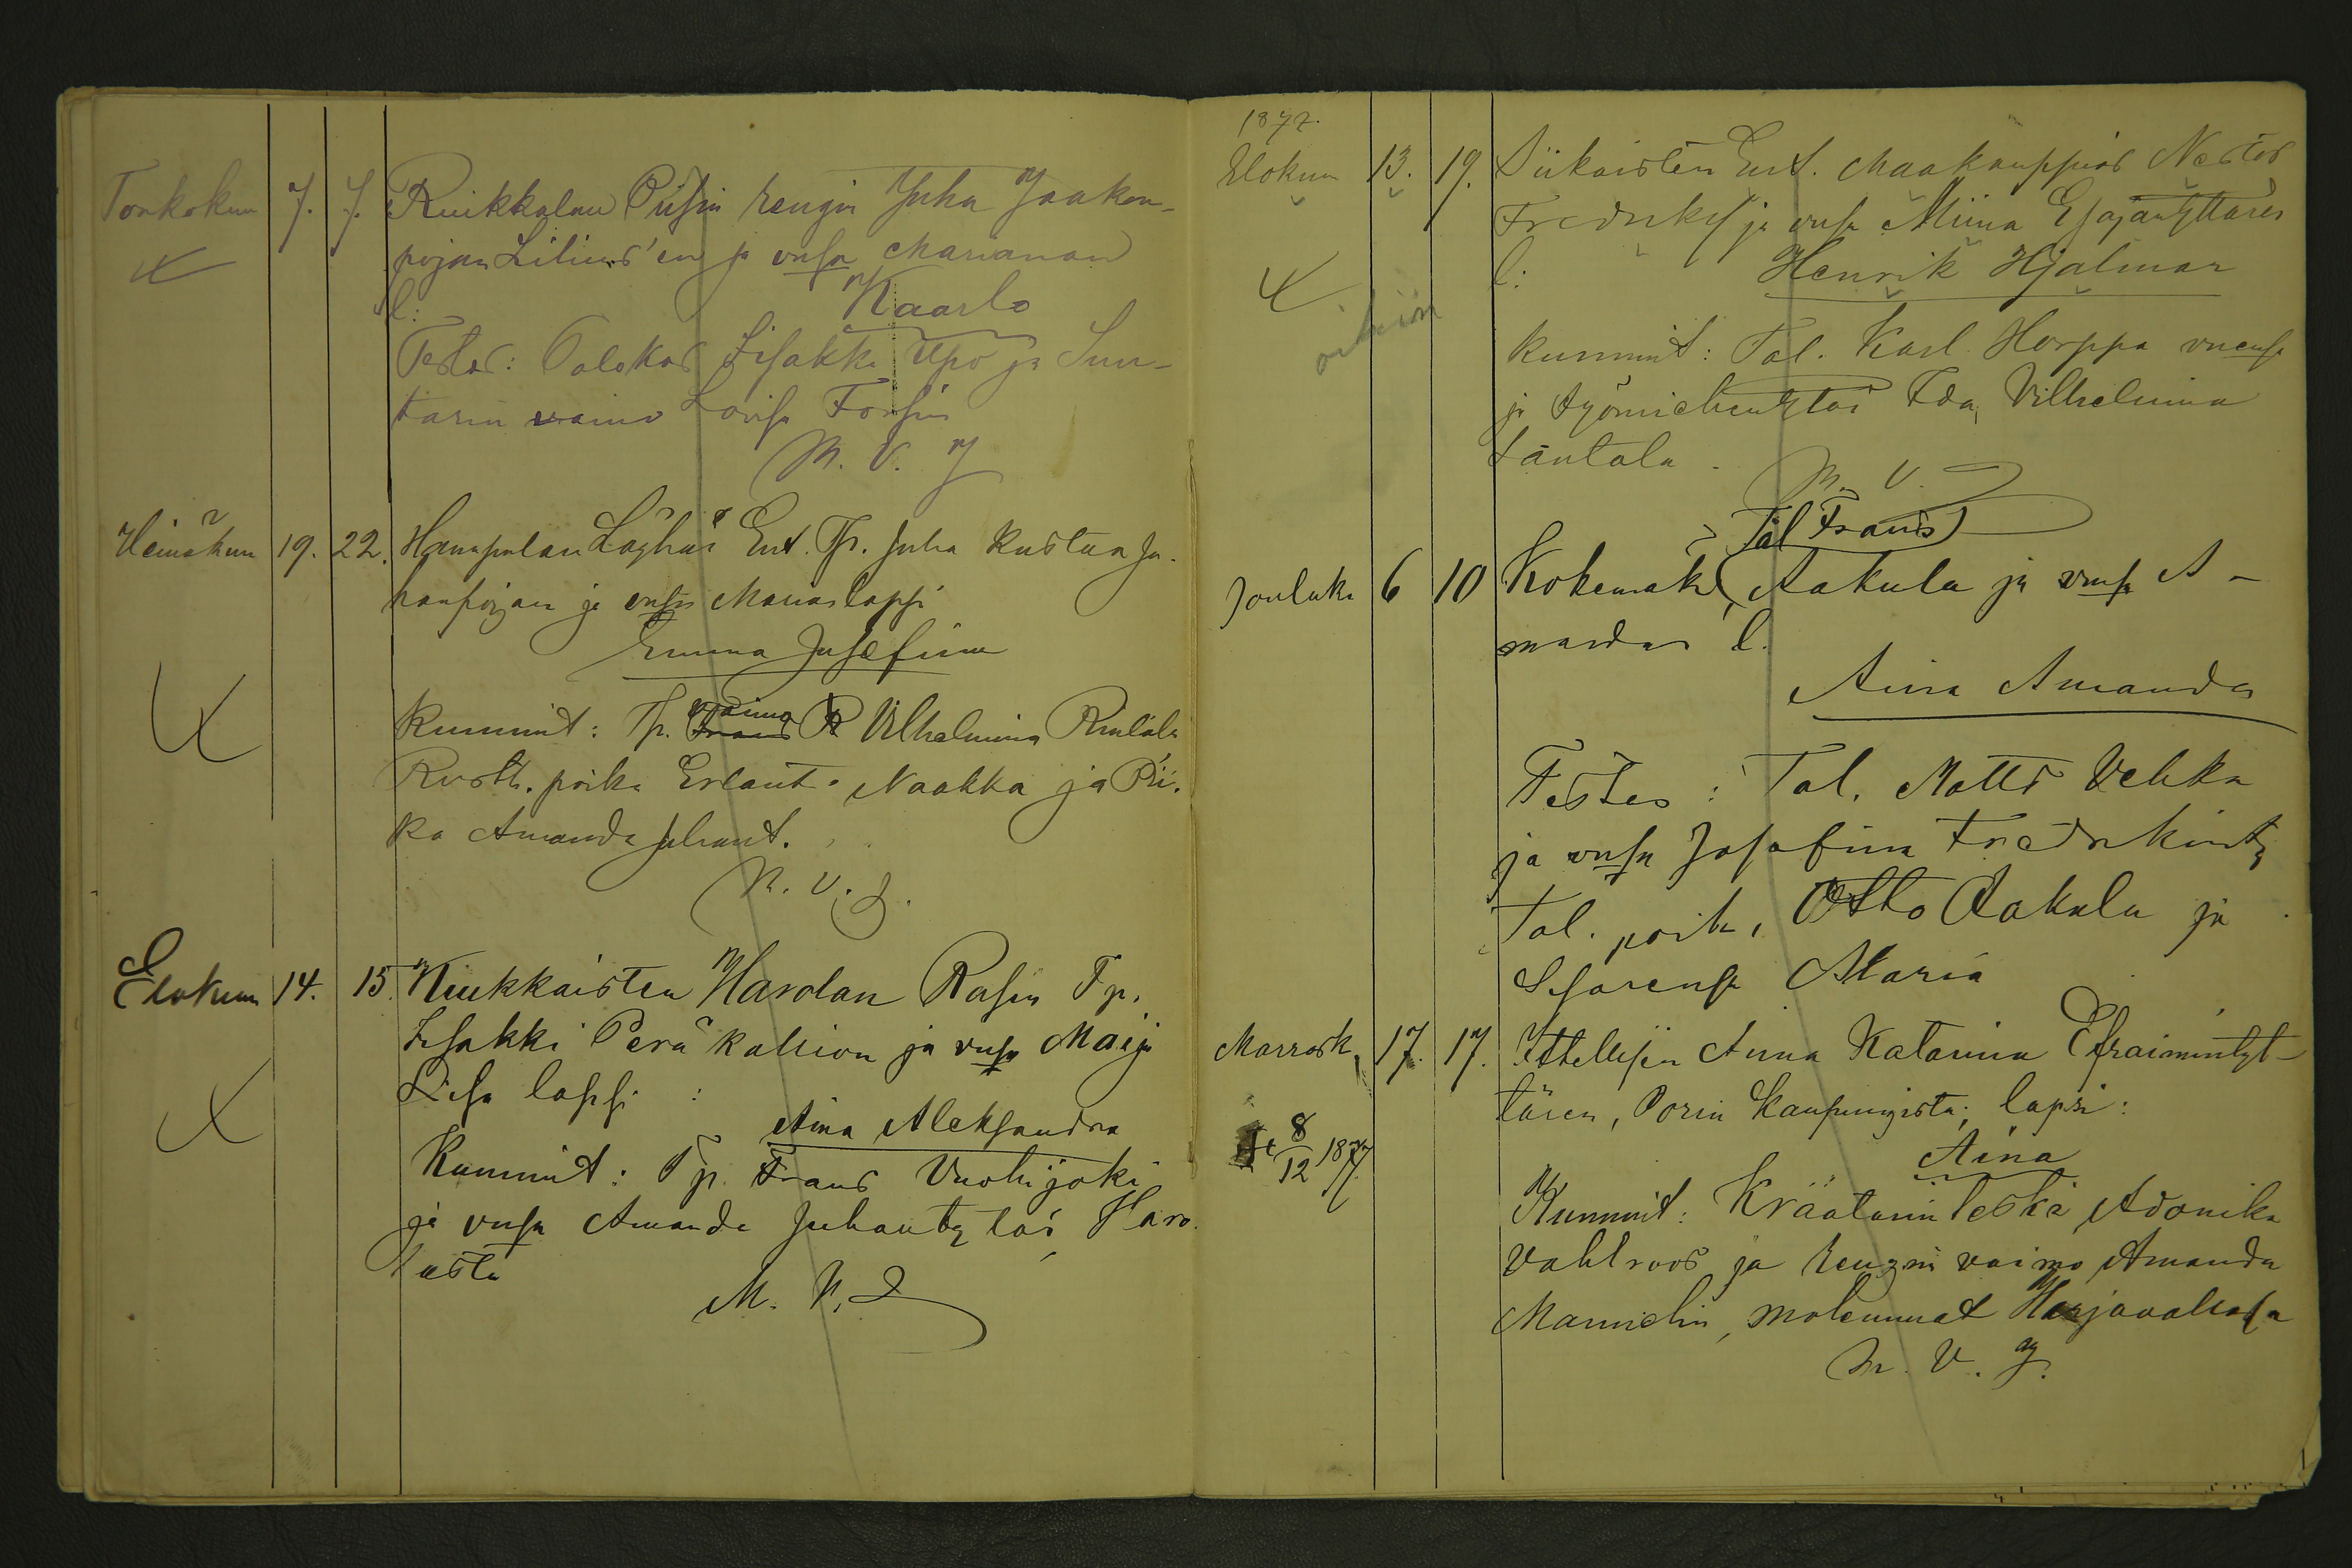 Toukokuu 7. 7. Ruikkalan Piisin rengin Juha Jaakon-
pojan Lilius'en ja vmsa Marianan
l: Kaarlo
Testes: Oalokas Iisakki Upo ja Suu-
tarin vaimo Lovisa Forssin
M. V. J
Heinäkuu 19. 22. Haunpulan Ent. Tp. Juha Kustaa Ju-
hanpojan ja vmsa Marian lapsi
Emma Josefiina
Kummit: Tp. vaimo Vilhelmiina
Rusth. poika Erlant Naakka ja Pii-
ka Amanda Juhant.
M. V. J.
Elokuu 14. 15. Kiukkaisten Harolan Rasin Tp.
Iisakki Peräkallion ja vmsa Maija
Liisa lapsi :
Aina Aleksandra
Kummit: Tp. Frans Vuohijoki
ja vmsa Amanda Juhantytär Haro-
lasta
M. V. J
1877.
Elokuu 13. 19. Siikaisten Ent. Maakauppias Nestor
Fredrik ja vmsa Miina Esajantyttären
l: Henrik Hjalmar
Kummit: Tal. Karl Horppa vmensa
ja työmiehentytär Ida Vilhelmina
Säntala.
M. V. J
Tal Frans
Jouluk. 6 10 Kokemäki, Aakula ja vmsa A-
mandan l.
Aina Amanda
Testes: Tal. Matti Vehka
ja vmsa Josefina Fredrikint.
Tal. poika, Otto Aakula ja
Sisarensa Maria
Marrask. 17. 17. Itsellisen Anna Katarina Efraimintyt-
tären, Porin kaupungista, lapsi:
8/12 1877
Aina
Kummit: Kräätärin leski Adonika
Vahlroos ja rengin vaimo Amanda
Mannelin, molemmat Harjavallassa
M. V. J.